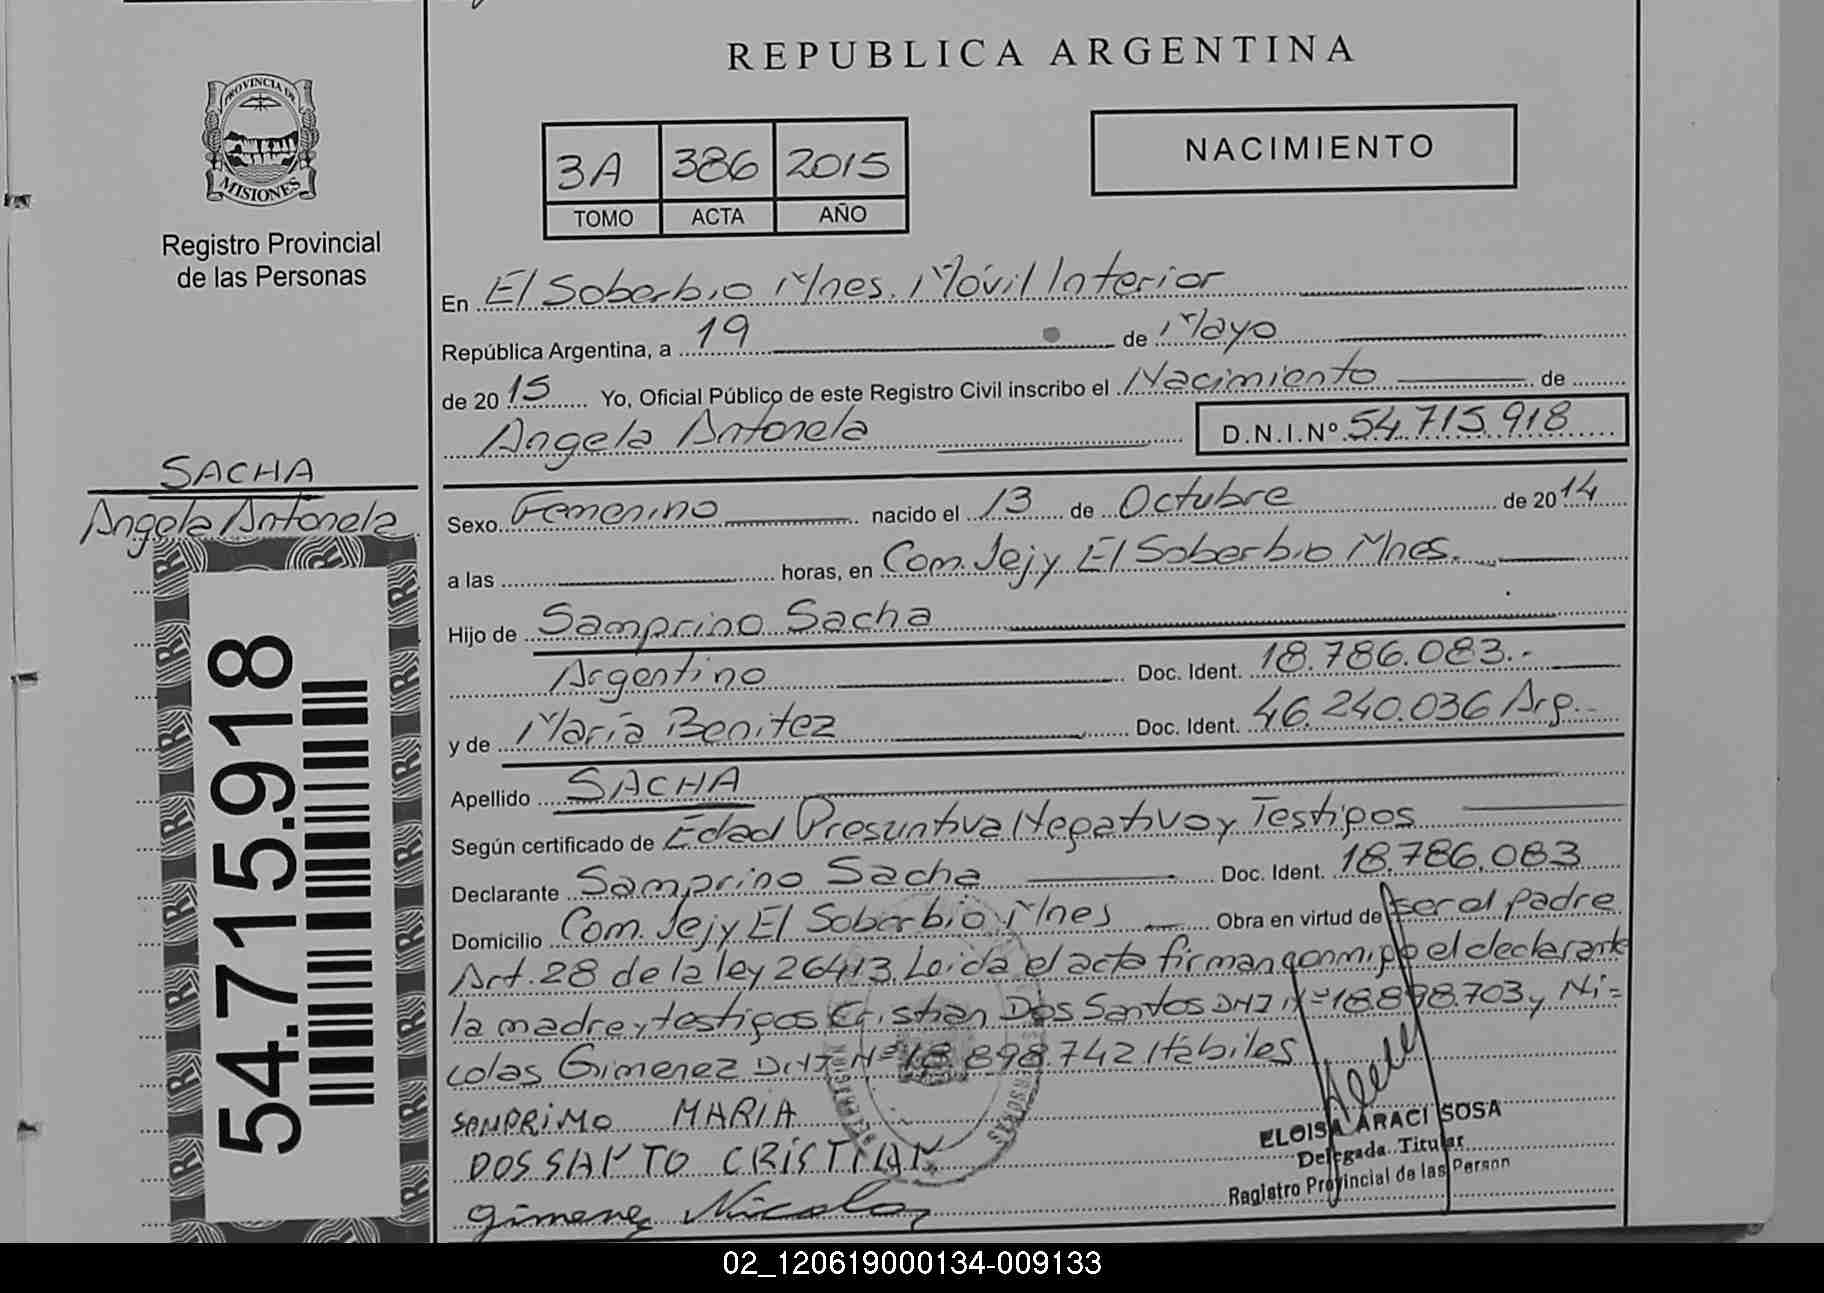 REPUBLICA ARGENTINA
PROVINCIA DE
MISIONES
Registro Provincial
de las Personas
3A 386 2015
TOMO ACTA AÑO
NACIMIENTO
En El Soberbio Mnes. Móvil Interior
República Argentina, a 19 de Mayo
de 2015 Yo, Oficial Público de este Registro Civil inscribo el Nacimiento de
Angela Antonela D.N.I.Nº 54.715.918
SACHA
Angela Antonela
Sexo Femenino nacido el 13 de Octubre de 2014
a las horas, en Com. Jejy El Soberbio Mnes.
Hijo de Samprino Sacha
Argentino Doc. Ident. 18.786.083.-
y de María Benitez Doc. Ident. 46.240.036 Arg.-
Apellido SACHA
Según certificado de Edad Presuntiva Negativo y Testigos
Declarante Samprino Sacha Doc. Ident. 18.786.083
Domicilio Com. Jejy El Soberbio Mnes Obra en virtud de ser el padre
Art. 28 de la ley 26413. Leida el acta firman conmigo el declarante
la madre y testigos Cristian Dos Santos DNI Nº 18.898.703 y Ni=
colas Gimenez DNI Nº 18.898.742 Hábiles
SAMPRiMO MARIA
DOS SANTO CRISTIAN
Gimenez Nicolas
ELOISA ARACI SOSA
Delegada Titular
Registro Provincial de las Person
54.715.918
02_120619000134-009133